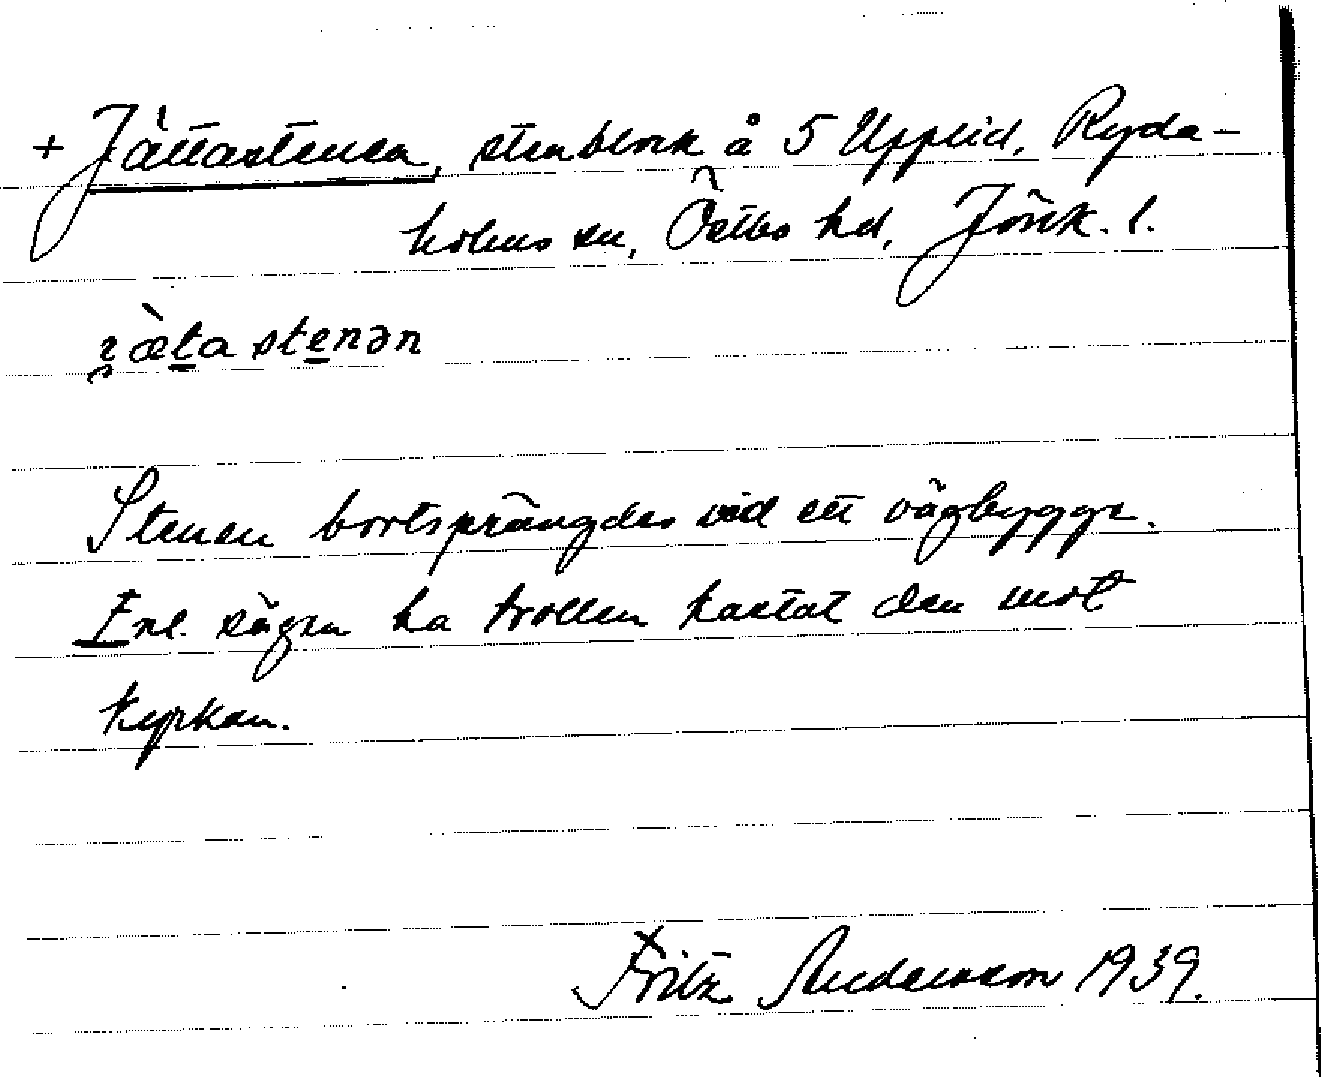 + Jättastenen, stenblock å 5 Upplid, Ryda-
holms sn, Östbo hd, Jönk. l.
stenən
Stenen bortsprängdes vid ett vägbygge.
Enl. sägen ha trollen kastat den mot
kyrkan.
Fritz Andersson 1939.